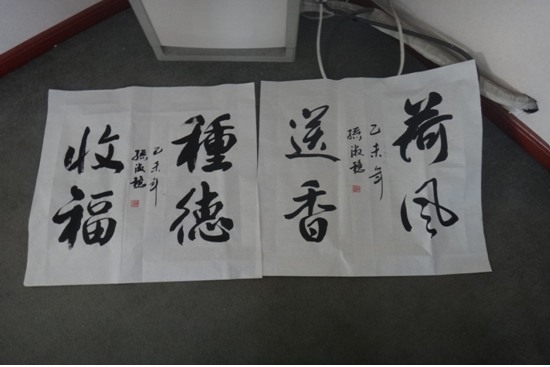 荷風
送香
乙未年
孫淑懿
種德
收福
乙未年
孫淑懿